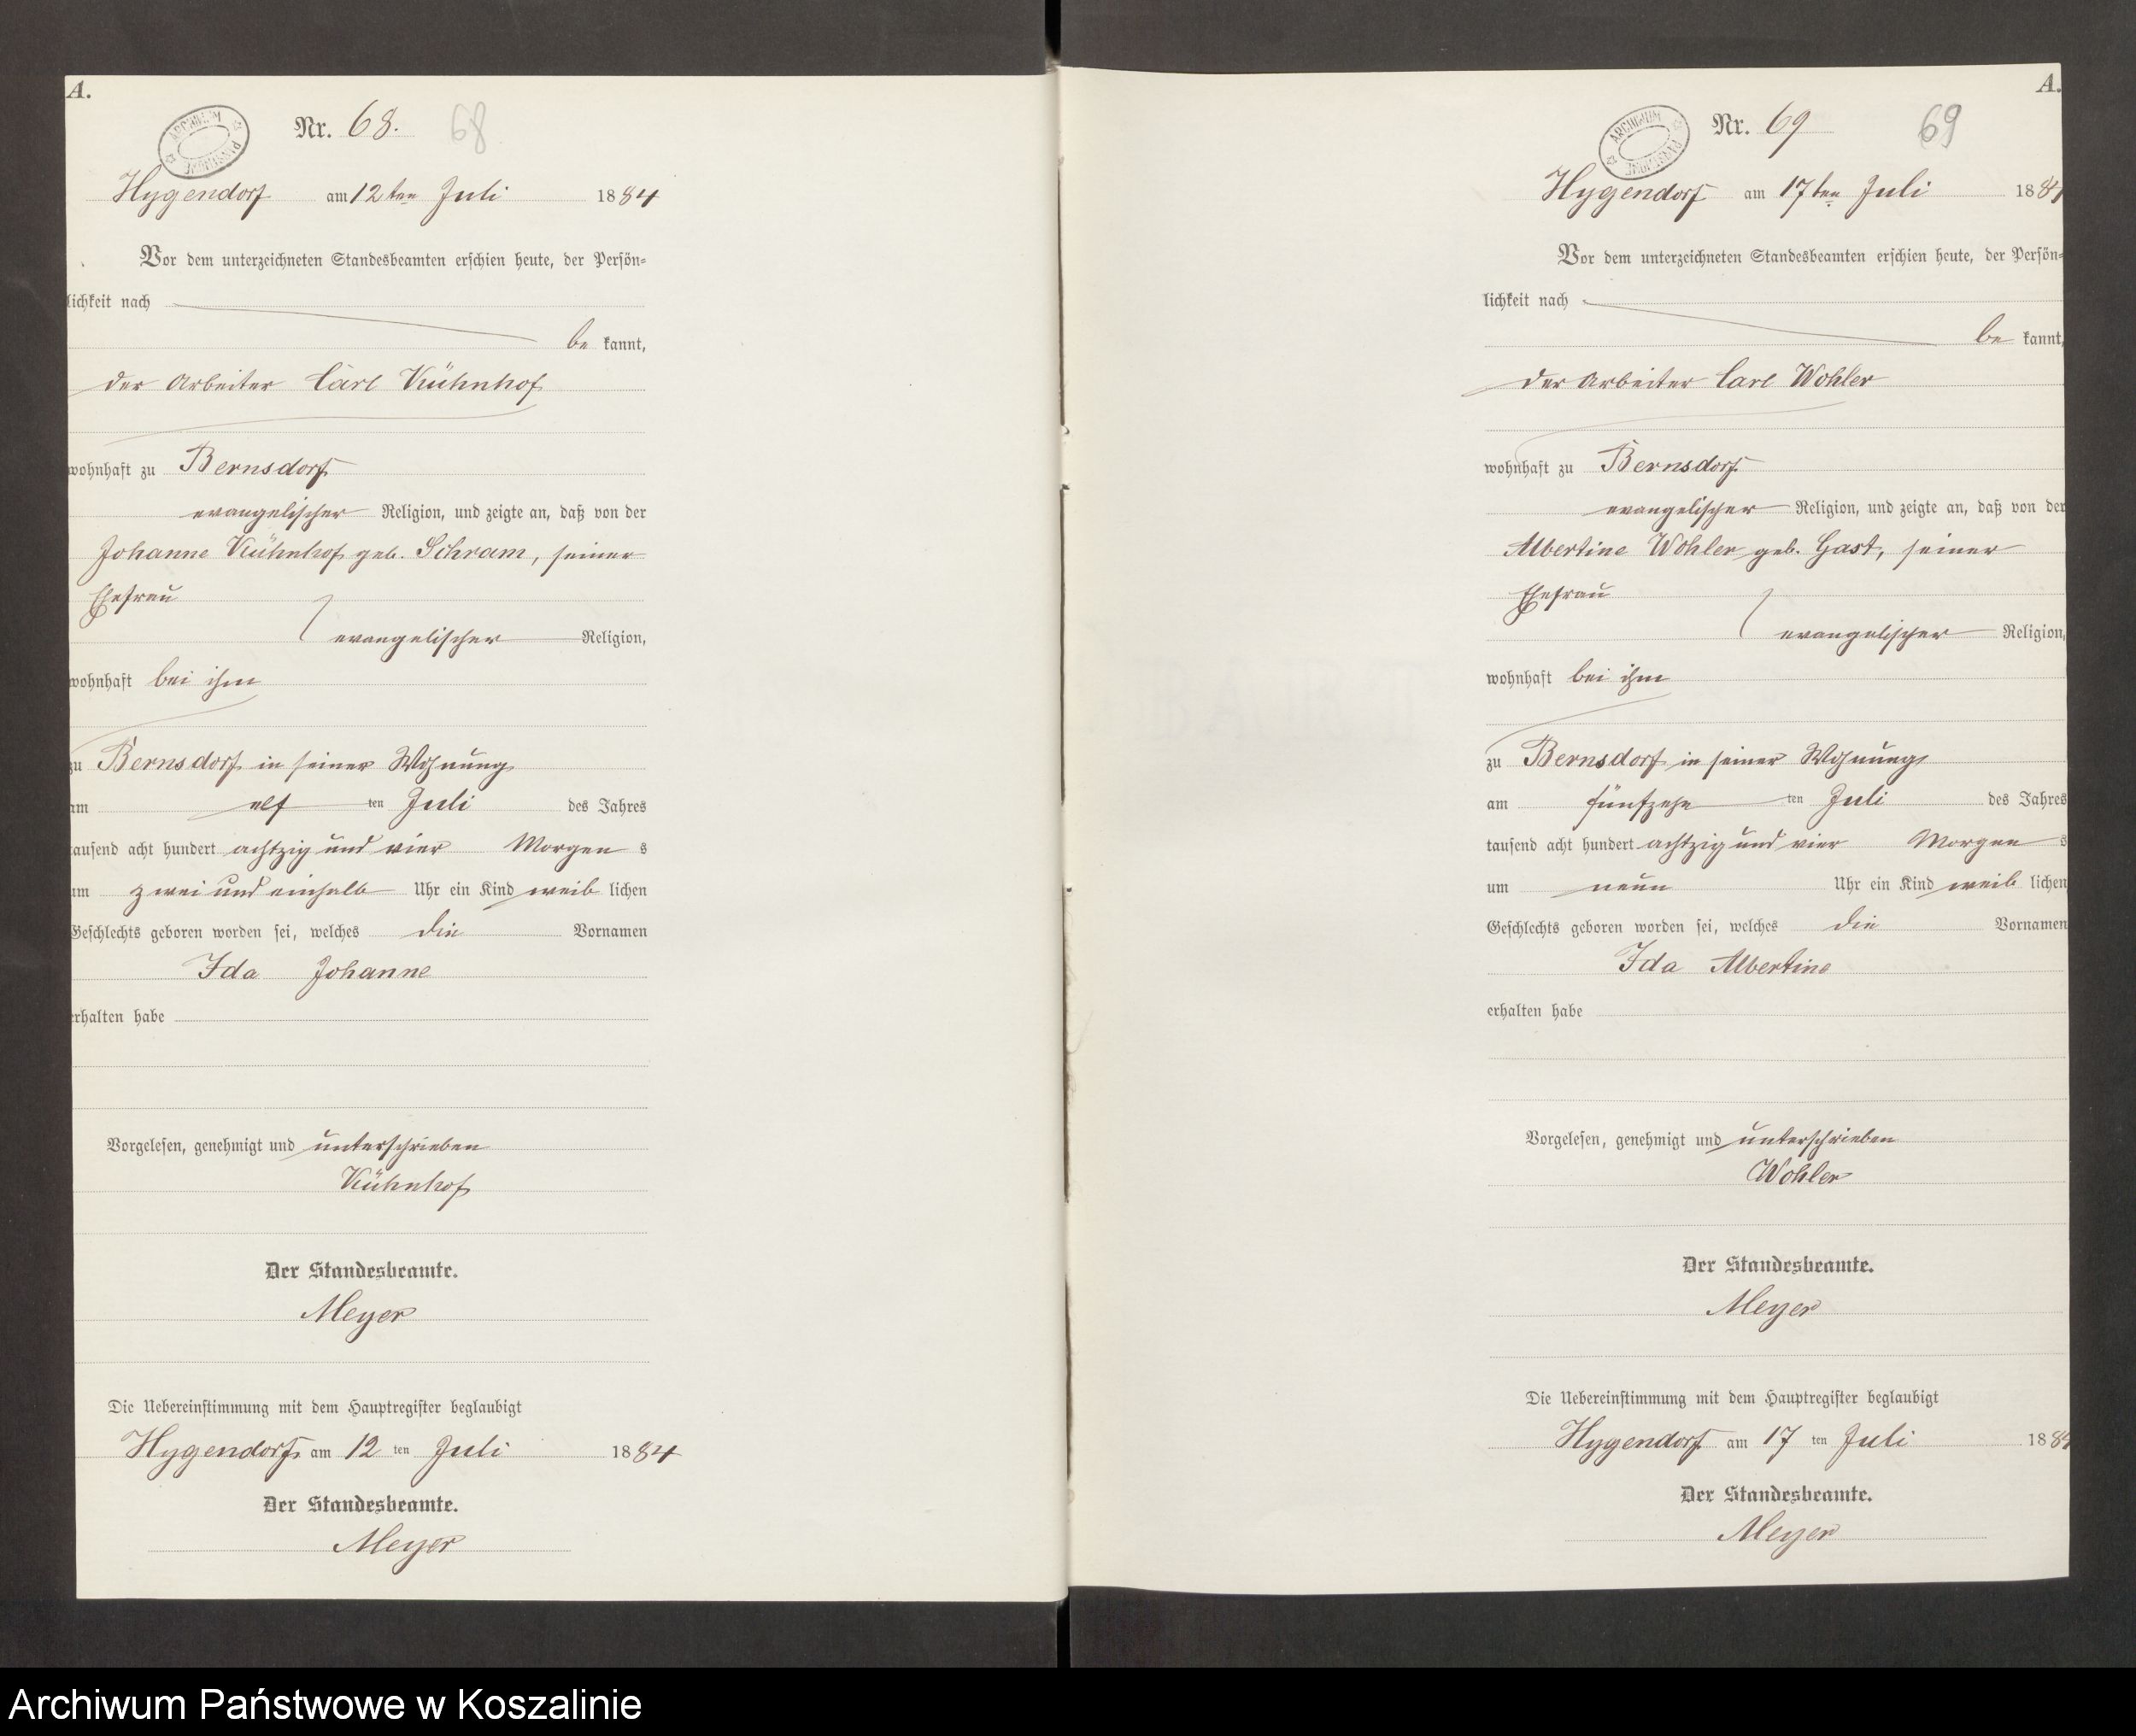 A.
ARCHIWUM PAŃSTWOWE
Nr. 68. 68
Hygendorf am 12ten Juli 1884
Vor dem unterzeichneten Standesbeamten erschien heute, der Persön-
lichkeit nach
be kannt,
der Arbeiter Carl Kühnhof
wohnhaft zu Bernsdorf
evangelischer Religion, und zeigte an, daß von der
Johanne Kühnhof geb. Schram, seiner
Ehefrau
evangelischer Religion,
wohnhaft bei ihm
zu Bernsdorf in seiner Wohnung
am elf ten Juli des Jahres
tausend acht hundert achtzig und vier Morgen s
um zwei und einhalb Uhr ein Kind weib lichen
Geschlechts geboren worden sei, welches die Vornamen
Ida Johanne
erhalten habe
Vorgelesen, genehmigt und unterschrieben
Kühnhof
Der Standesbeamte.
Meyer
Die Uebereinstimmung mit dem Hauptregister beglaubigt
Hygendorf am 12 ten Juli 1884
Der Standesbeamte.
Meyer
A.
ARCHIWUM PAŃSTWOWE
Nr. 69 69
Hygendorf am 17ten Juli 1884
Vor dem unterzeichneten Standesbeamten erschien heute, der Persön-
lichkeit nach
be kannt,
der Arbeiter Carl Wohler
wohnhaft zu Bernsdorf
evangelischer Religion, und zeigte an, daß von der
Albertine Wohler geb. Gast, seiner
Ehefrau
evangelischer Religion,
wohnhaft bei ihm
zu Bernsdorf in seiner Wohnung
am fünfzehn ten Juli des Jahres
tausend acht hundert achtzig und vier Morgen s
um neun Uhr ein Kind weib lichen
Geschlechts geboren worden sei, welches die Vornamen
Ida Albertine
erhalten habe
Vorgelesen, genehmigt und unterschrieben
Wohler
Der Standesbeamte.
Meyer
Die Uebereinstimmung mit dem Hauptregister beglaubigt
Hygendorf am 17 ten Juli 1884
Der Standesbeamte.
Meyer
Archiwum Państwowe w Koszalinie